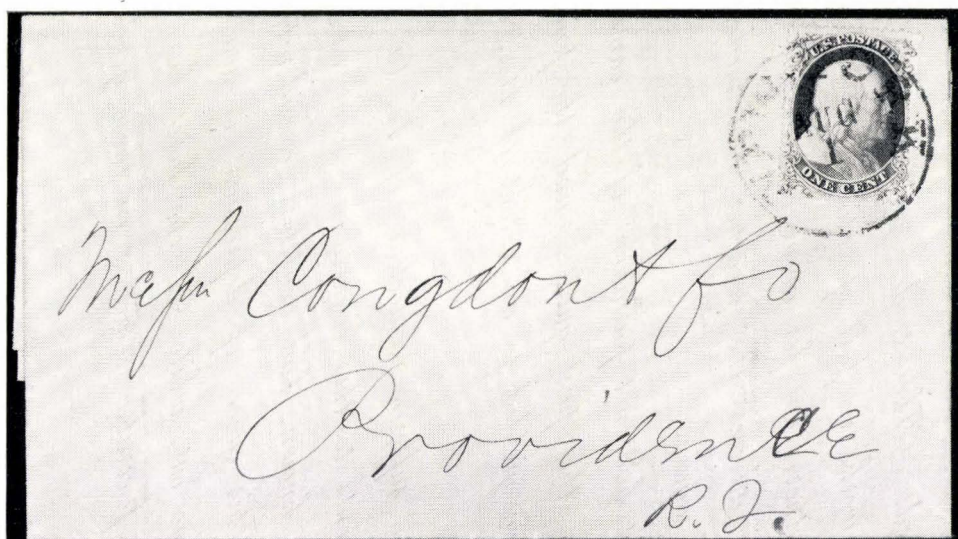 U.S. POSTAGE
ONE CENT
Messrs Congdon & Co
Providence
R. I.